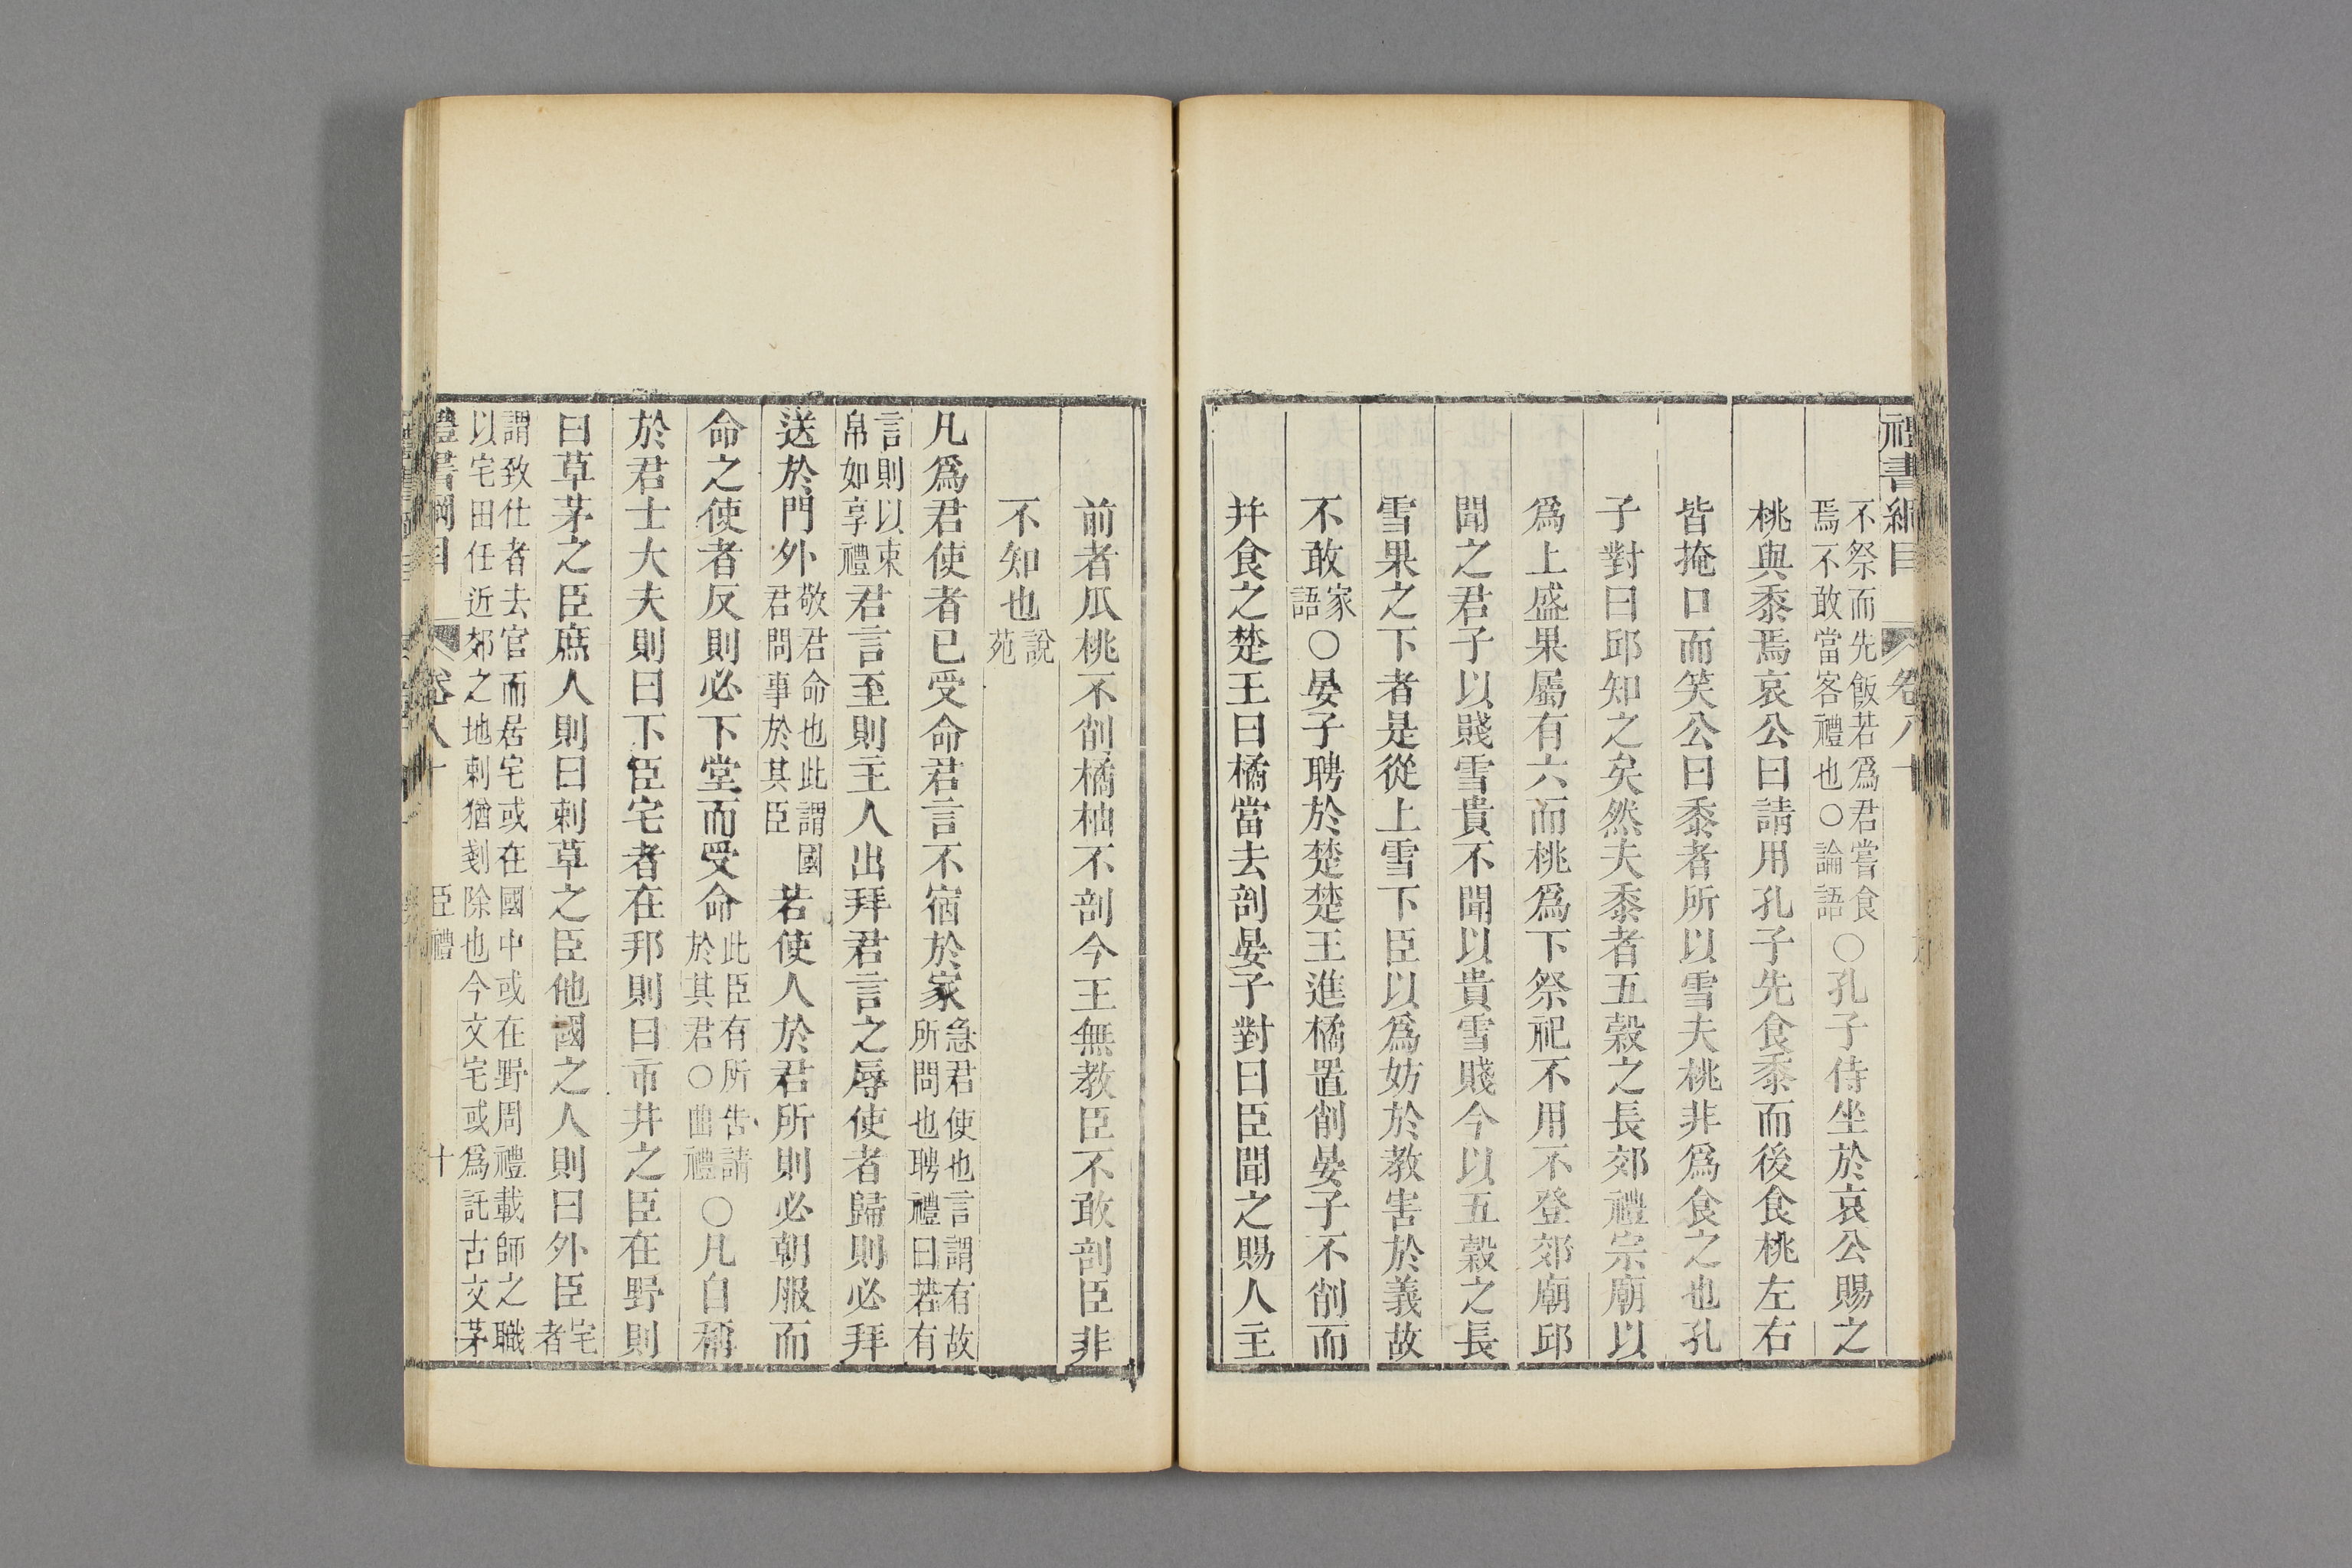 禮書綱目 卷八十
不祭而先飯若爲君嘗食
焉不敢當客禮也○論語
○孔子侍坐於哀公賜之
桃與黍焉哀公曰請用孔子先食黍而後食桃左右
皆掩口而笑公曰黍者所以雪夫桃非爲食之也孔
子對曰邱知之矣然夫黍者五穀之長郊禮宗廟以
爲上盛果屬有六而桃爲下祭祀不用不登郊廟邱
聞之君子以賤雪貴不聞以貴雪賤今以五穀之長
雪果之下者是從上雪下臣以爲妨於教害於義故
不敢家語○晏子聘於楚楚王進橘置削晏子不削而
并食之楚王曰橘當去剖晏子對曰臣聞之賜人主
前者瓜桃不削橘柚不剖今王無教臣不敢剖臣非
不知也說苑
凡爲君使者已受命君言不宿於家
急君使也言謂有故
所問也聘禮曰若有
言則以束
帛如享禮
君言至則主人出拜君言之辱使者歸則必拜
送於門外
敬君命也此謂國
君問事於其臣
若使人於君所則必朝服而
命之使者反則必下堂而受命
此臣有所告請
於其君○曲禮
○凡自稱
於君士大夫則曰下臣宅者在邦則曰市井之臣在野則
曰草茅之臣庶人則曰刺草之臣他國之人則曰外臣
宅
者
謂致仕者去官而居宅或在國中或在野周禮載師之職
以宅田任近郊之地刺猶剗除也今文宅或爲託古文茅
禮書綱目 卷八十 臣禮 十